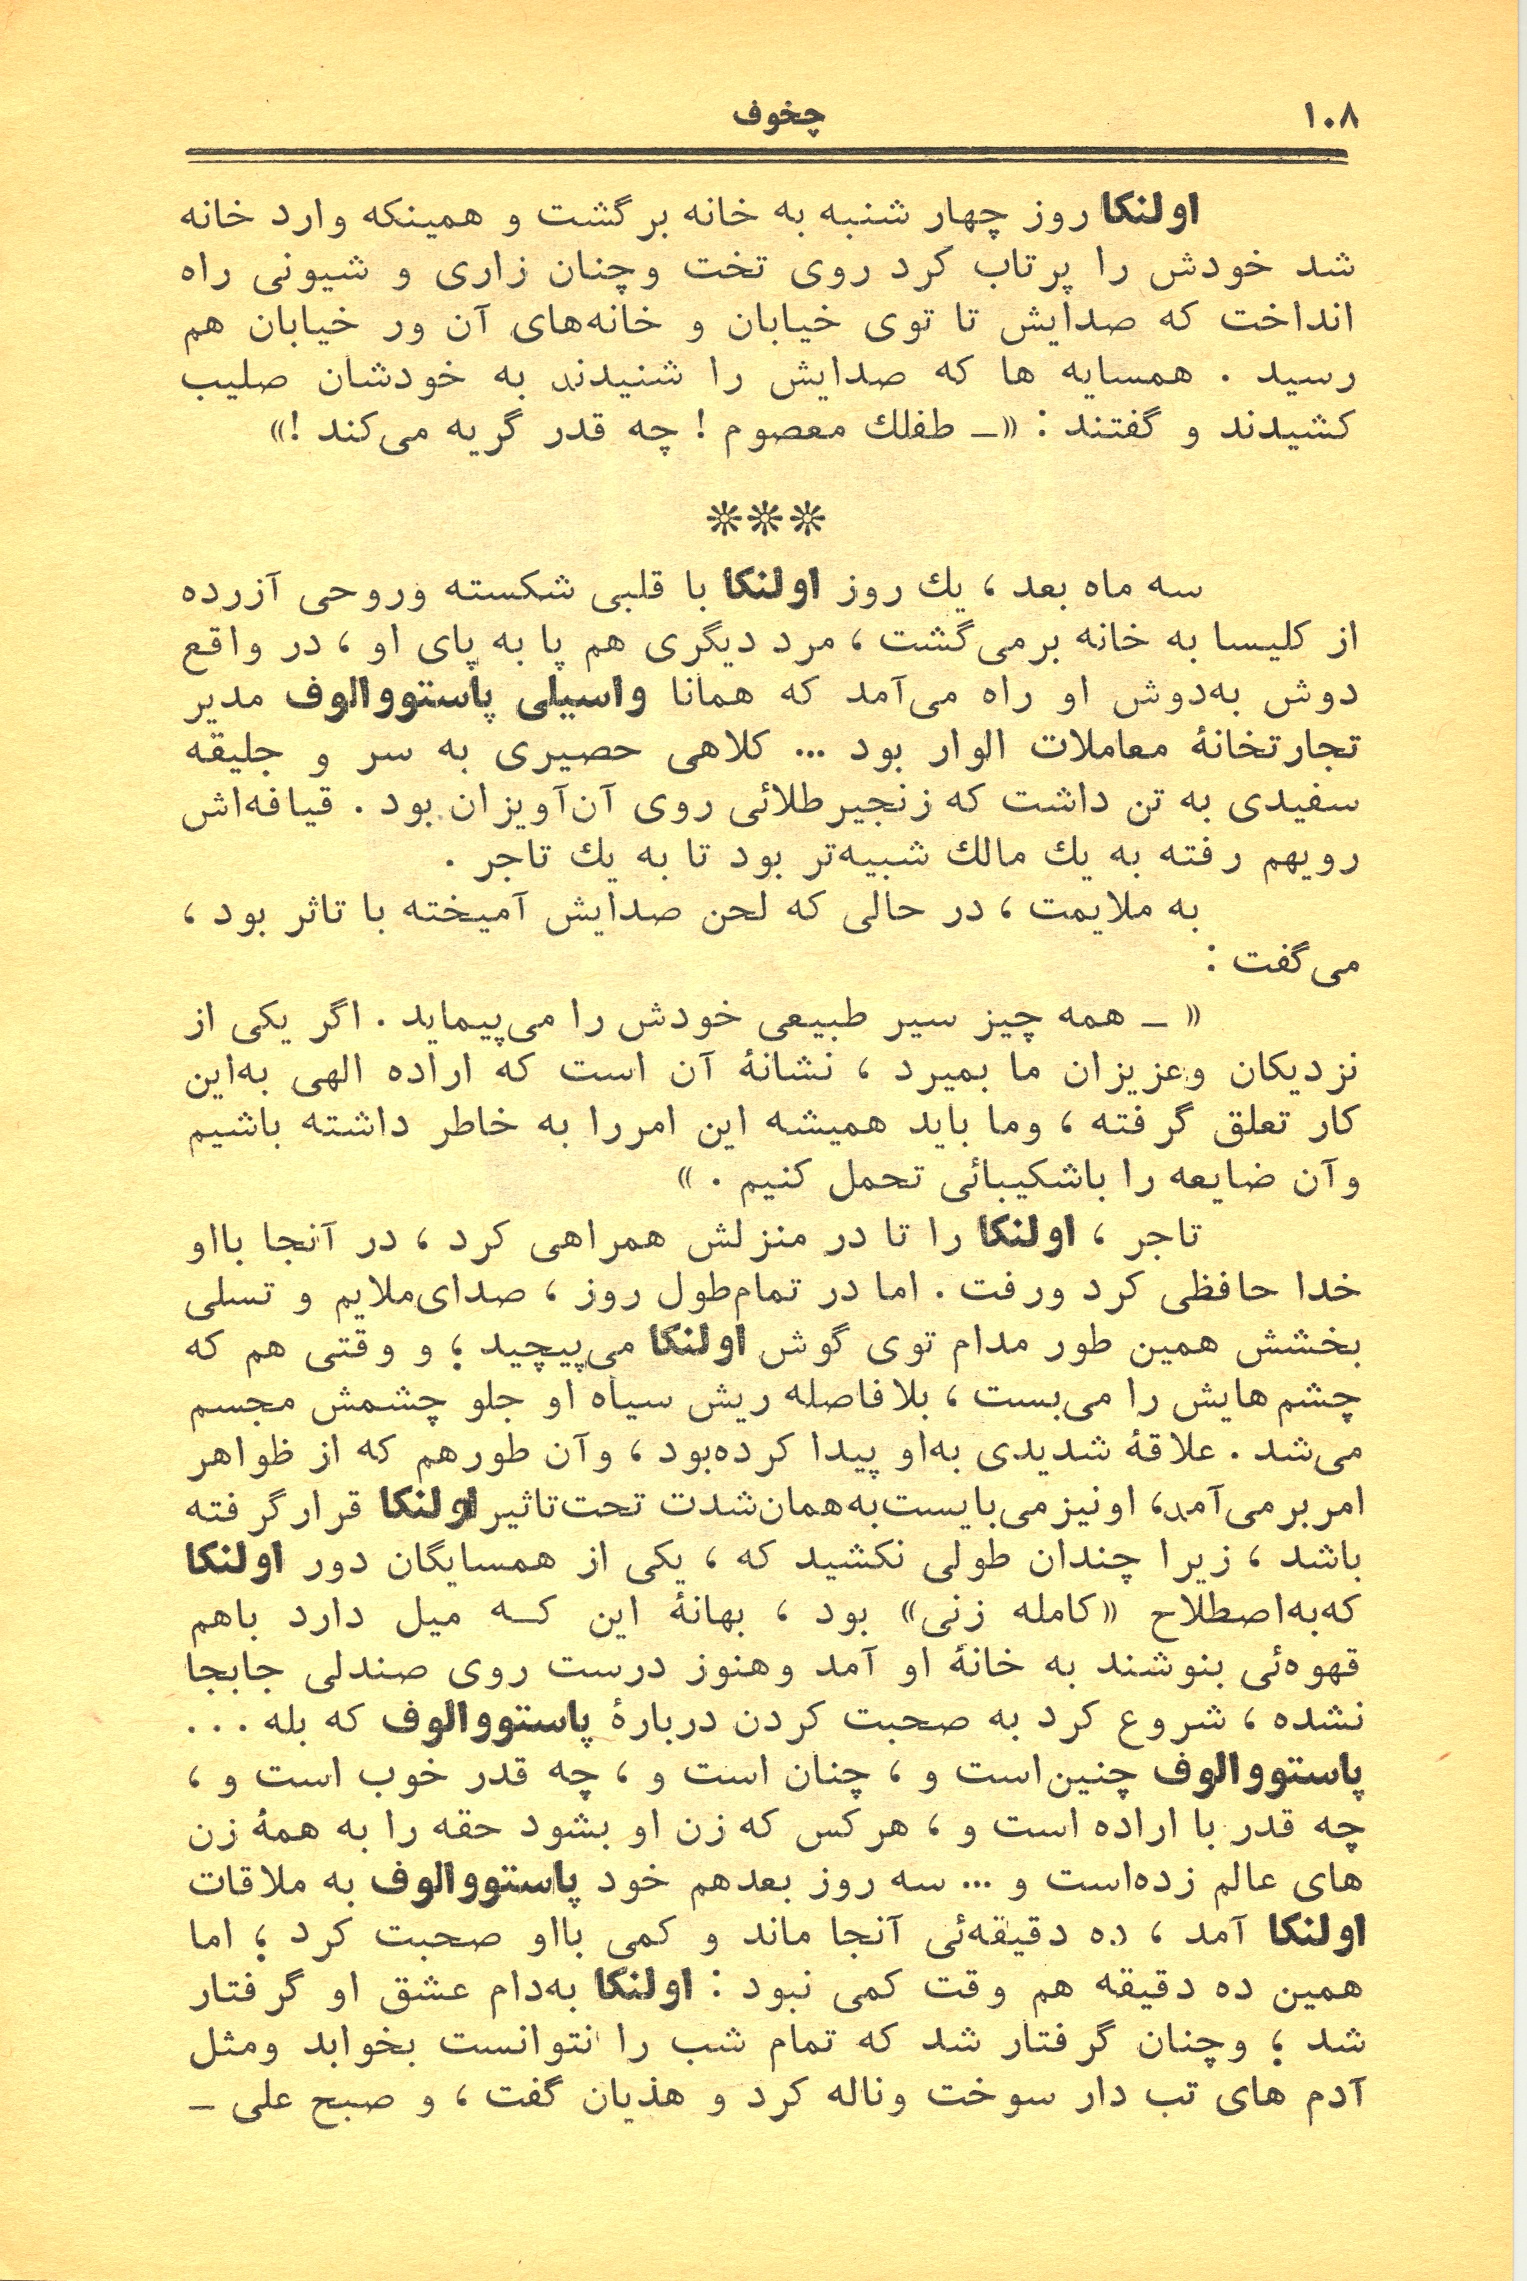 ۱۰۸
چخوف
اولنکا روز چهار شنبه به خانه برگشت و همینکه وارد خانه
شد خودش را پرتاب کرد روی تخت وچنان زاری و شیونی راه
انداخت که صدایش تا توی خیابان و خانه‌های آن ور خیابان هم
رسید . همسایه ها که صدایش را شنیدند به خودشان صلیب
کشیدند و گفتند : «ـ طفلك معصوم ! چه قدر گریه می‌کند !»
***
سه ماه بعد ، يك روز اولنکا با قلبی شکسته وروحی آزرده
از کلیسا به خانه برمی‌گشت ، مرد دیگری هم پا به پای او ، در واقع
دوش به‌دوش او راه می‌آمد که همانا واسیلی پاستووالوف مدیر
تجارتخانهٔ معاملات الوار بود ... کلاهی حصیری به سر و جلیقه
سفیدی به تن داشت که زنجیرطلائی روی آن‌آویزان بود . قیافه‌اش
رویهم رفته به يك مالك شبیه‌تر بود تا به يك تاجر .
به ملایمت ، در حالی که لحن صدایش آمیخته با تاثر بود ،
می‌گفت :
« ـ همه چیز سیر طبیعی خودش را می‌پیماید . اگر یکی از
نزدیکان وعزیزان ما بمیرد ، نشانهٔ آن است که اراده الهی به‌این
کار تعلق گرفته ، وما باید همیشه این امررا به خاطر داشته باشیم
وآن ضایعه را باشکیبائی تحمل کنیم . »
تاجر ، اولنکا را تا در منزلش همراهی کرد ، در آنجا بااو
خدا حافظی کرد ورفت . اما در تمام‌طول روز ، صدای‌ملایم و تسلی
بخشش همین طور مدام توی گوش اولنکا می‌پیچید ؛ و وقتی هم که
چشم‌هایش را می‌بست ، بلافاصله ریش سیاه او جلو چشمش مجسم
می‌شد . علاقهٔ شدیدی به‌او پیدا کرده‌بود ، وآن طورهم که از ظواهر
امربرمی‌آمد، اونیزمی‌بایست‌به‌همان‌شدت تحت‌تاثیراولنکا قرارگرفته
باشد ، زیرا چندان طولی نکشید که ، یکی از همسایگان دور اولنکا
که‌به‌اصطلاح «کامله زنی» بود ، بهانهٔ این کـه میل دارد باهم
قهوه‌ئی بنوشند به خانهٔ او آمد وهنوز درست روی صندلی جابجا
نشده ، شروع کرد به صحبت کردن دربارهٔ پاستووالوف که بله . . .
پاستووالوف چنین‌است و ، چنان است و ، چه قدر خوب است و ،
چه قدر با اراده است و ، هرکس که زن او بشود حقه را به همهٔ زن
های عالم زده‌است و ... سه روز بعدهم خود پاستووالوف به ملاقات
اولنکا آمد ، ده دقیقه‌ئی آنجا ماند و کمی بااو صحبت کرد ؛ اما
همین ده دقیقه هم وقت کمی نبود : اولنکا به‌دام عشق او گرفتار
شد ؛ وچنان گرفتار شد که تمام شب را نتوانست بخوابد ومثل
آدم های تب دار سوخت وناله کرد و هذیان گفت ، و صبح علی ـ